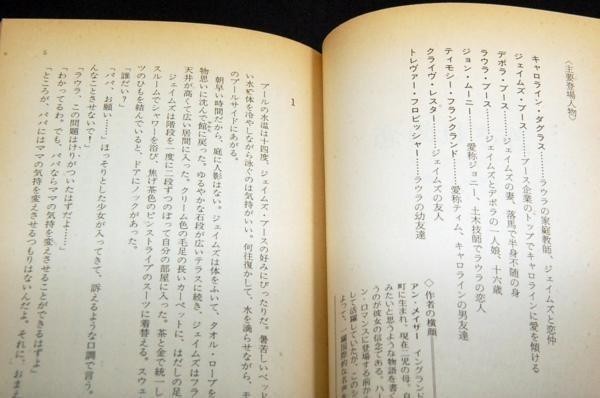 〈主要登場人物〉
キャロライン・ダグラス………ラウラの家庭教師、ジェイムズと恋仲
ジェイムズ・ブース………ブース企業のトップでキャロラインに愛を傾ける
デボラ・ブース………ジェイムズの妻、落馬で半身不随の身
ラウラ・ブース………ジェイムズとデボラの一人娘、十六歳
ジョン・ムーニー………愛称ジョニー、土木技師でラウラの恋人
ティモシー・フランクランド………愛称ティム、キャロラインの男友達
クライヴ・レスター………ジェイムズの友人
トレヴァー・フロビッシャー………ラウラの幼友達
◇作者の横顔
アン・メイザー　イングランド
町に生まれ、現在二児の母。自
みたいと思うような物語を書く
うのが彼女の信念である。ハー
ン・ロマンスに登場する前か
して活躍していたが、このシ
よって、一躍国際的な名声を
1
プールの水温は十四度、ジェイムズ・ブースの好みにぴったりだ。暑苦しいベッド
い水で体を冷やしながら泳ぐのは気持がいい。何往復かして、水を滴らせながら、モ
のプールサイドにあがる。
朝早い時間だから、庭に人影はない。ジェイムズは体をふいて、タオル・ローブを
物思いに沈んで館に戻った。ゆるやかな石段が広いテラスに続き、ジェイムズはフラ
天井が高くて広い居間に入った。クリーム色の毛足の長いカーペットに、はだしの足
ジェイムズは階段を一度に二段ずつのぼって自分の部屋に行く。茶と金で統一し
スルームでシャワーを浴び、焦げ茶色のピンストライプのスーツに着替える。スウェ
ツのひもを結んでいると、ドアにノックがあった。
「誰だい？」
「パパ、お願い……」ほっそりとした少女が入ってきて、訴えるような口調で言う。
んなことさせないで！」
「ラウラ、この問題はけりがついたはずだよ……」
「わかってるわ。でも、パパならママの気持を変えさせることができるはずよ」
「ところが、パパにはママの気持を変えさせるつもりはないんだよ。それに、おまえ
5